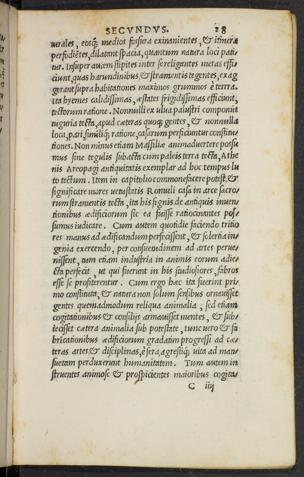 SECVNDVS. 28
turales, eosq; medios fossura exinanientes, & itinera
perfodiẽtes, dilatant spacia, quantum natura loci pati-
tur. Insuper autem stipites inter se religantes metas effi
ciunt, quas harundinibus & stramentis tegentes, exag
gerant supra habitationes maximos grummos è terra.
ita hyemes calidissimas, æstates frigidissimas efficiunt,
tectorum ratione. Nonnulli ex ulua palustri componũt
tuguria tecta, apud cæteras quoq; gentes, & nonnulla
loca, pari, similiq; ratione, casarum perficiuntur constitu
tiones. Non minus etiam Massiliæ animaduertere possu
mus sine tegulis subacta cum paleis terra tecta, Athe
nis Areopagi antiquitatis exemplar ad hoc tempus lu
to tectum. Item in capitolio commonefacere potest, &
significare mores uetustatis Romuli casa in arce sacro
rum stramentis tecta, ita his signis de antiquis inuen
tionibus ædificiorum sic ea fuisse ratiocinantes pos-
sumus iudicare. Cum autem quotidie faciendo tritio
res manus ad ædificandum perfecissent, & solertia in-
genia exercendo, per consuetudinem ad artes perue-
nissent, tum etiam industria in animis eorum adie-
cta perfecit, ut qui fuerunt in his studiosiores, fabros
esse se profiterentur. Cum ergo hæc ita fuerint pri-
mo constituta, & natura non solum sensibus ornauisset
gentes quemadmodum reliqua animalia, sed etiam
cogitationibus & consilijs armauisset mentes, & sub-
iecisset cætera animalia sub potestate, tunc uero & fa
bricationibus ædificiorum gradatim progressi ad cæ-
teras artes & disciplinas, è fera, agrestiq; uita ad man-
suetam perduxerunt humanitatem. Tum autem in
struentes animose & prospicientes maioribus cogita-
C iiij